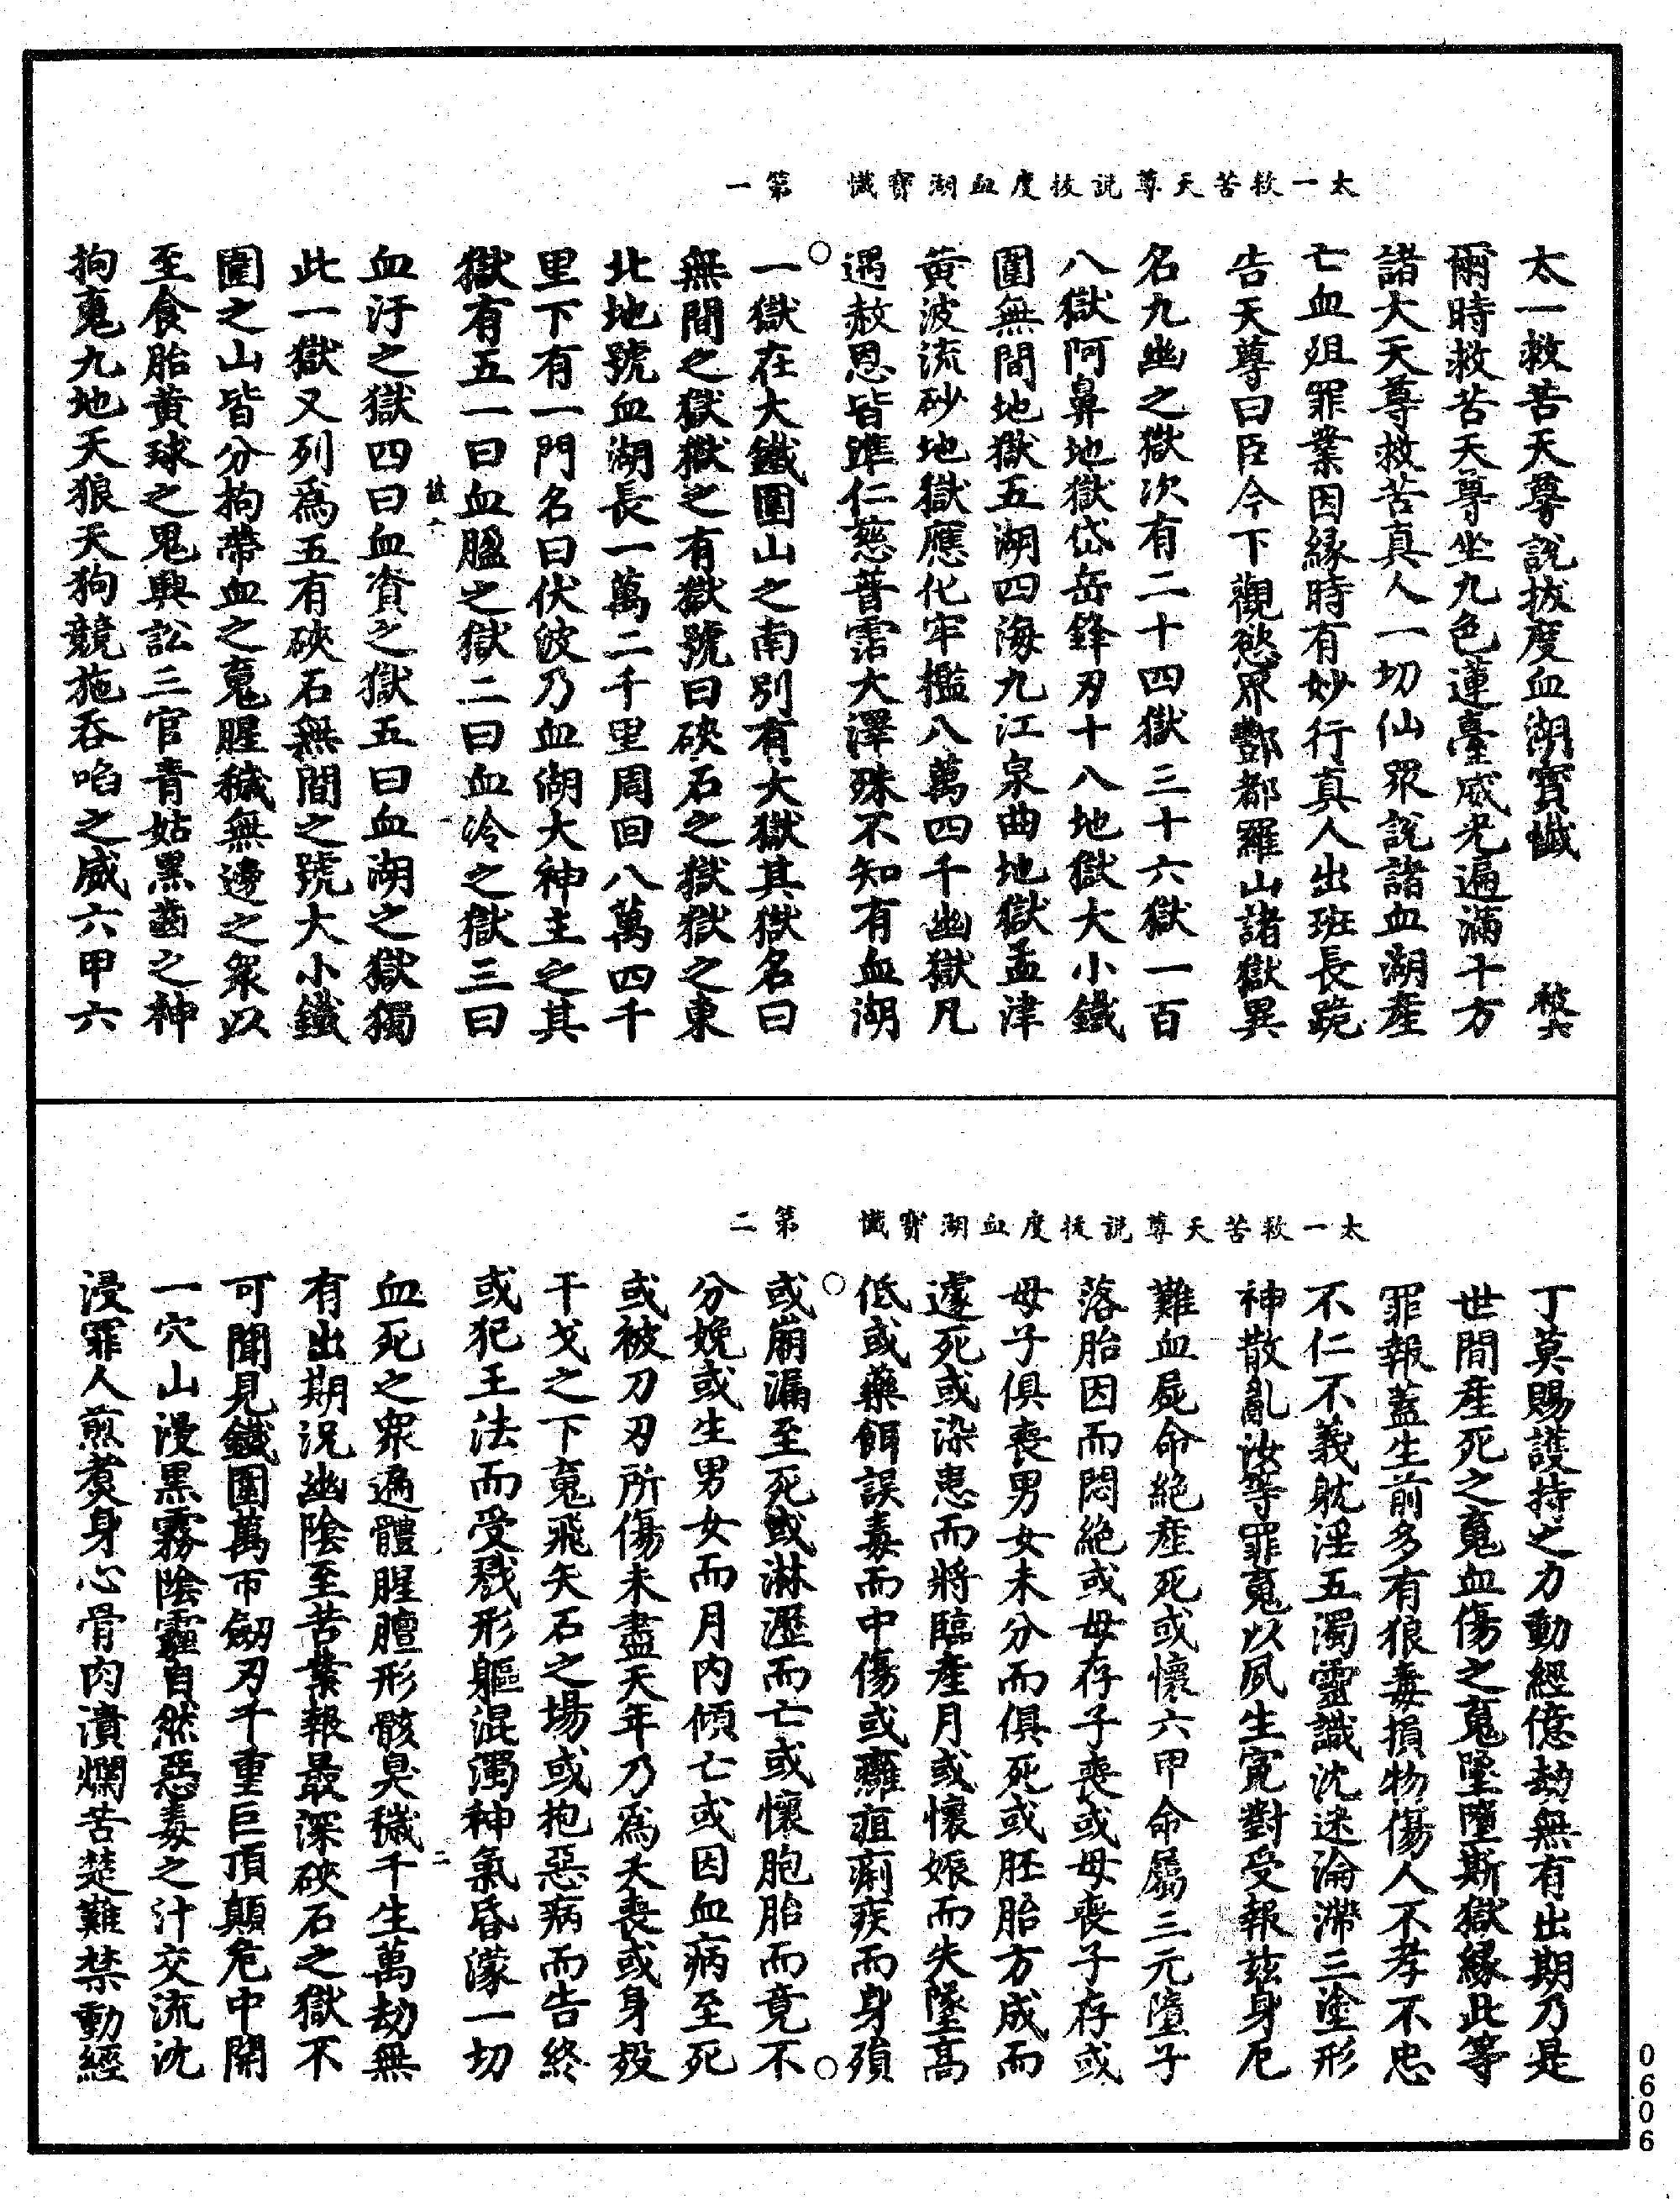 太一救苦天尊說拔度血湖寶懺　第一
太一救苦天尊說拔度血湖寶懺
爾時救苦天尊坐九色蓮臺威光遍滿十方
諸大天尊救苦真人一切仙眾說諸血湖產
亡血殂罪業因緣時有妙行真人出班長跪
告天尊曰臣今下觀慾界酆都羅山諸獄異
名九幽之獄次有二十四獄三十六獄一百
八獄阿鼻地獄岱岳鋒刃十八地獄大小鐵
圍無間地獄五湖四海九江泉曲地獄孟津
黃波流砂地獄應化牢檻八萬四千幽獄凡
遇赦恩皆蹕仁慈普霑大澤殊不知有血湖
一獄在大鐵圍山之南別有大獄其獄名曰
無間之獄獄之有獄號曰硤石之獄獄之東
北地號血湖長一萬二千里周回八萬四千
里下有一門名曰伏波乃血湖大神主之其
獄有五一曰血膃之獄二曰血冷之獄三曰
血汙之獄四曰血資之獄五曰血湖之獄獨
此一獄又列為五有硤石無間之號大小鐵
圍之山皆分拘帶血之䰟腥穢無邊之眾以
至食胎黃球之鬼興訟三官青姑黑齒之神
拘䰟九地天狼天狗競施吞啗之威六甲六
太一救苦天尊說拔度血湖寶懺　第二
丁莫賜護持之力動經億劫無有出期乃是
世間產死之䰟血傷之䰟墜墮斯獄緣此等
罪報蓋生前多有狼毒損物傷人不孝不忠
不仁不義躭淫五濁靈識沈迷淪滯三塗形
神散亂汝等罪䰟以夙生冤對受報玆身厄
難血屍命絕產死或懷六甲命屬三元墮子
落胎因而悶絕或母存子喪或母喪子存或
母子俱喪男女未分而俱死或胚胎方成而
遽死或染患而將臨產月或懷娠而失墜高
低或藥餌誤毒而中傷或癰疽痢疾而身殞
或崩漏至死或淋瀝而亡或懷胞胎而竟不
分娩或生男女而月內傾亡或因血病至死
或被刀刃所傷未盡天年乃為夭喪或身歿
干戈之下䰟飛矢石之場或抱惡病而告終
或犯王法而受戮形軀混濁神氣昏濛一切
血死之眾遍體腥膻形骸臭穢千生萬劫無
有出期況幽陰至苦業報最深硤石之獄不
可聞見鐵圍萬帀劒刃千重巨頂顛危中開
一穴山漫黑霧陰霾自然惡毒之汁交流沈
浸罪人煎煑身心骨肉潰爛苦楚難禁動經
0606